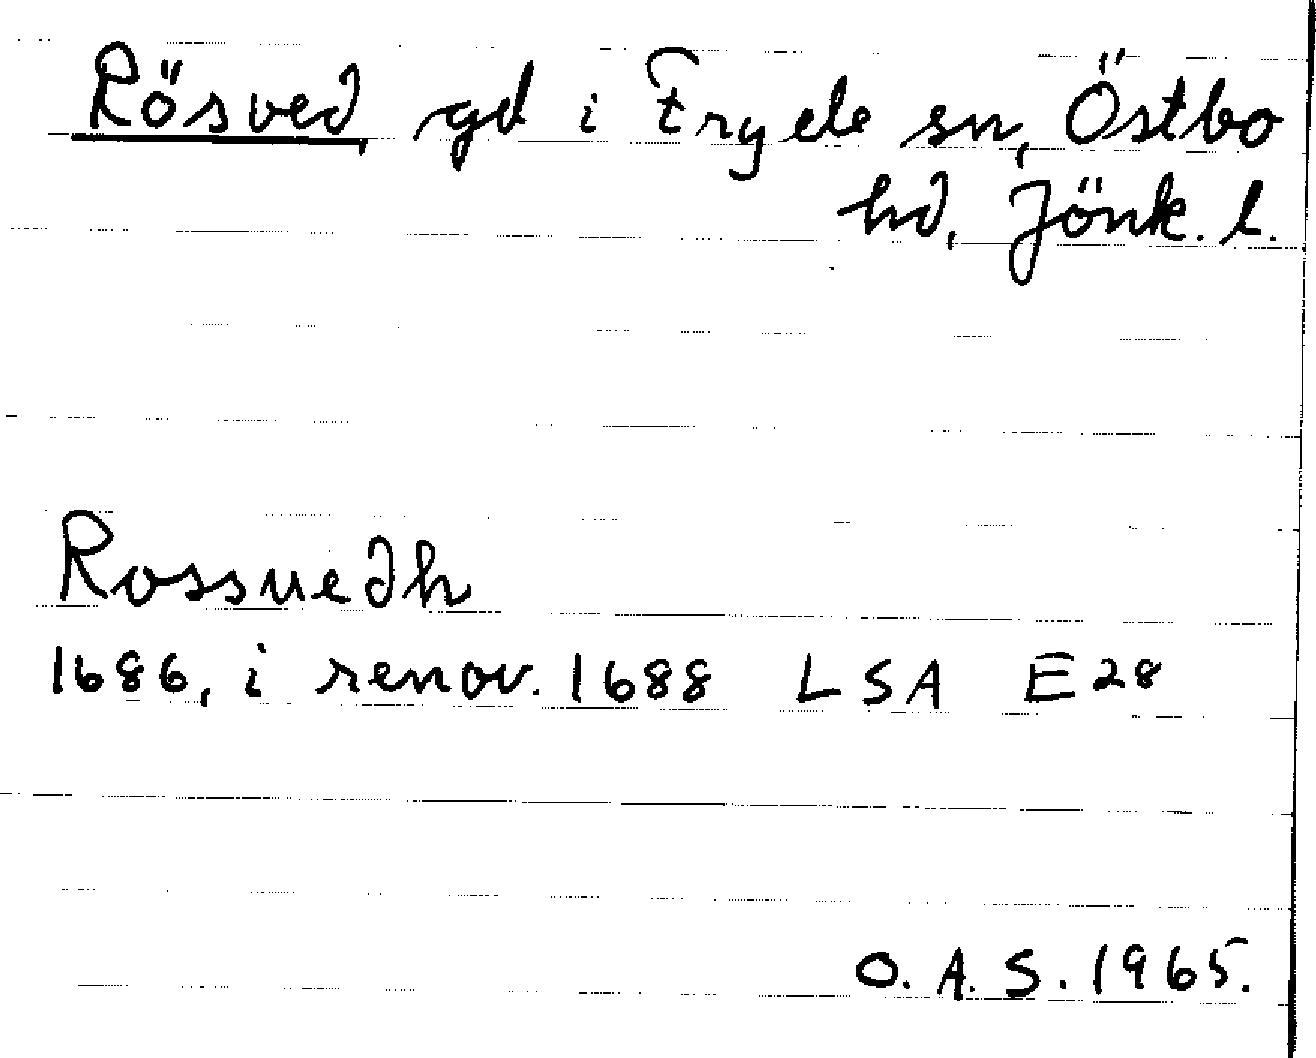 Rösved, gd i Fryele sn, Östbo
hd, Jönk. l.
Rossuedh
1686, i renov. 1688 LSA E28
O.A.S. 1965.